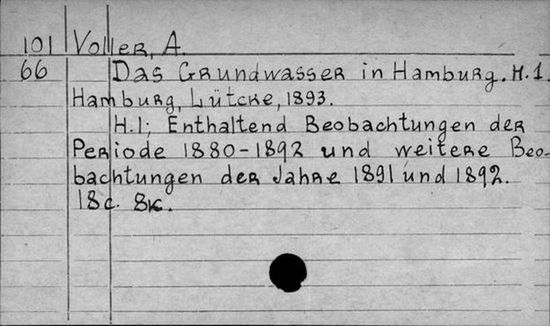 101 Voller, A.
66 Das Grundwasser in Hamburg. H.1.
Hamburg, Lütcke, 1893.
H.1; Enthaltend Beobachtungen der
Periode 1880-1892 und weitere Beo-
bachtungen der Jahre 1891 und 1892.
18 c. 8к.